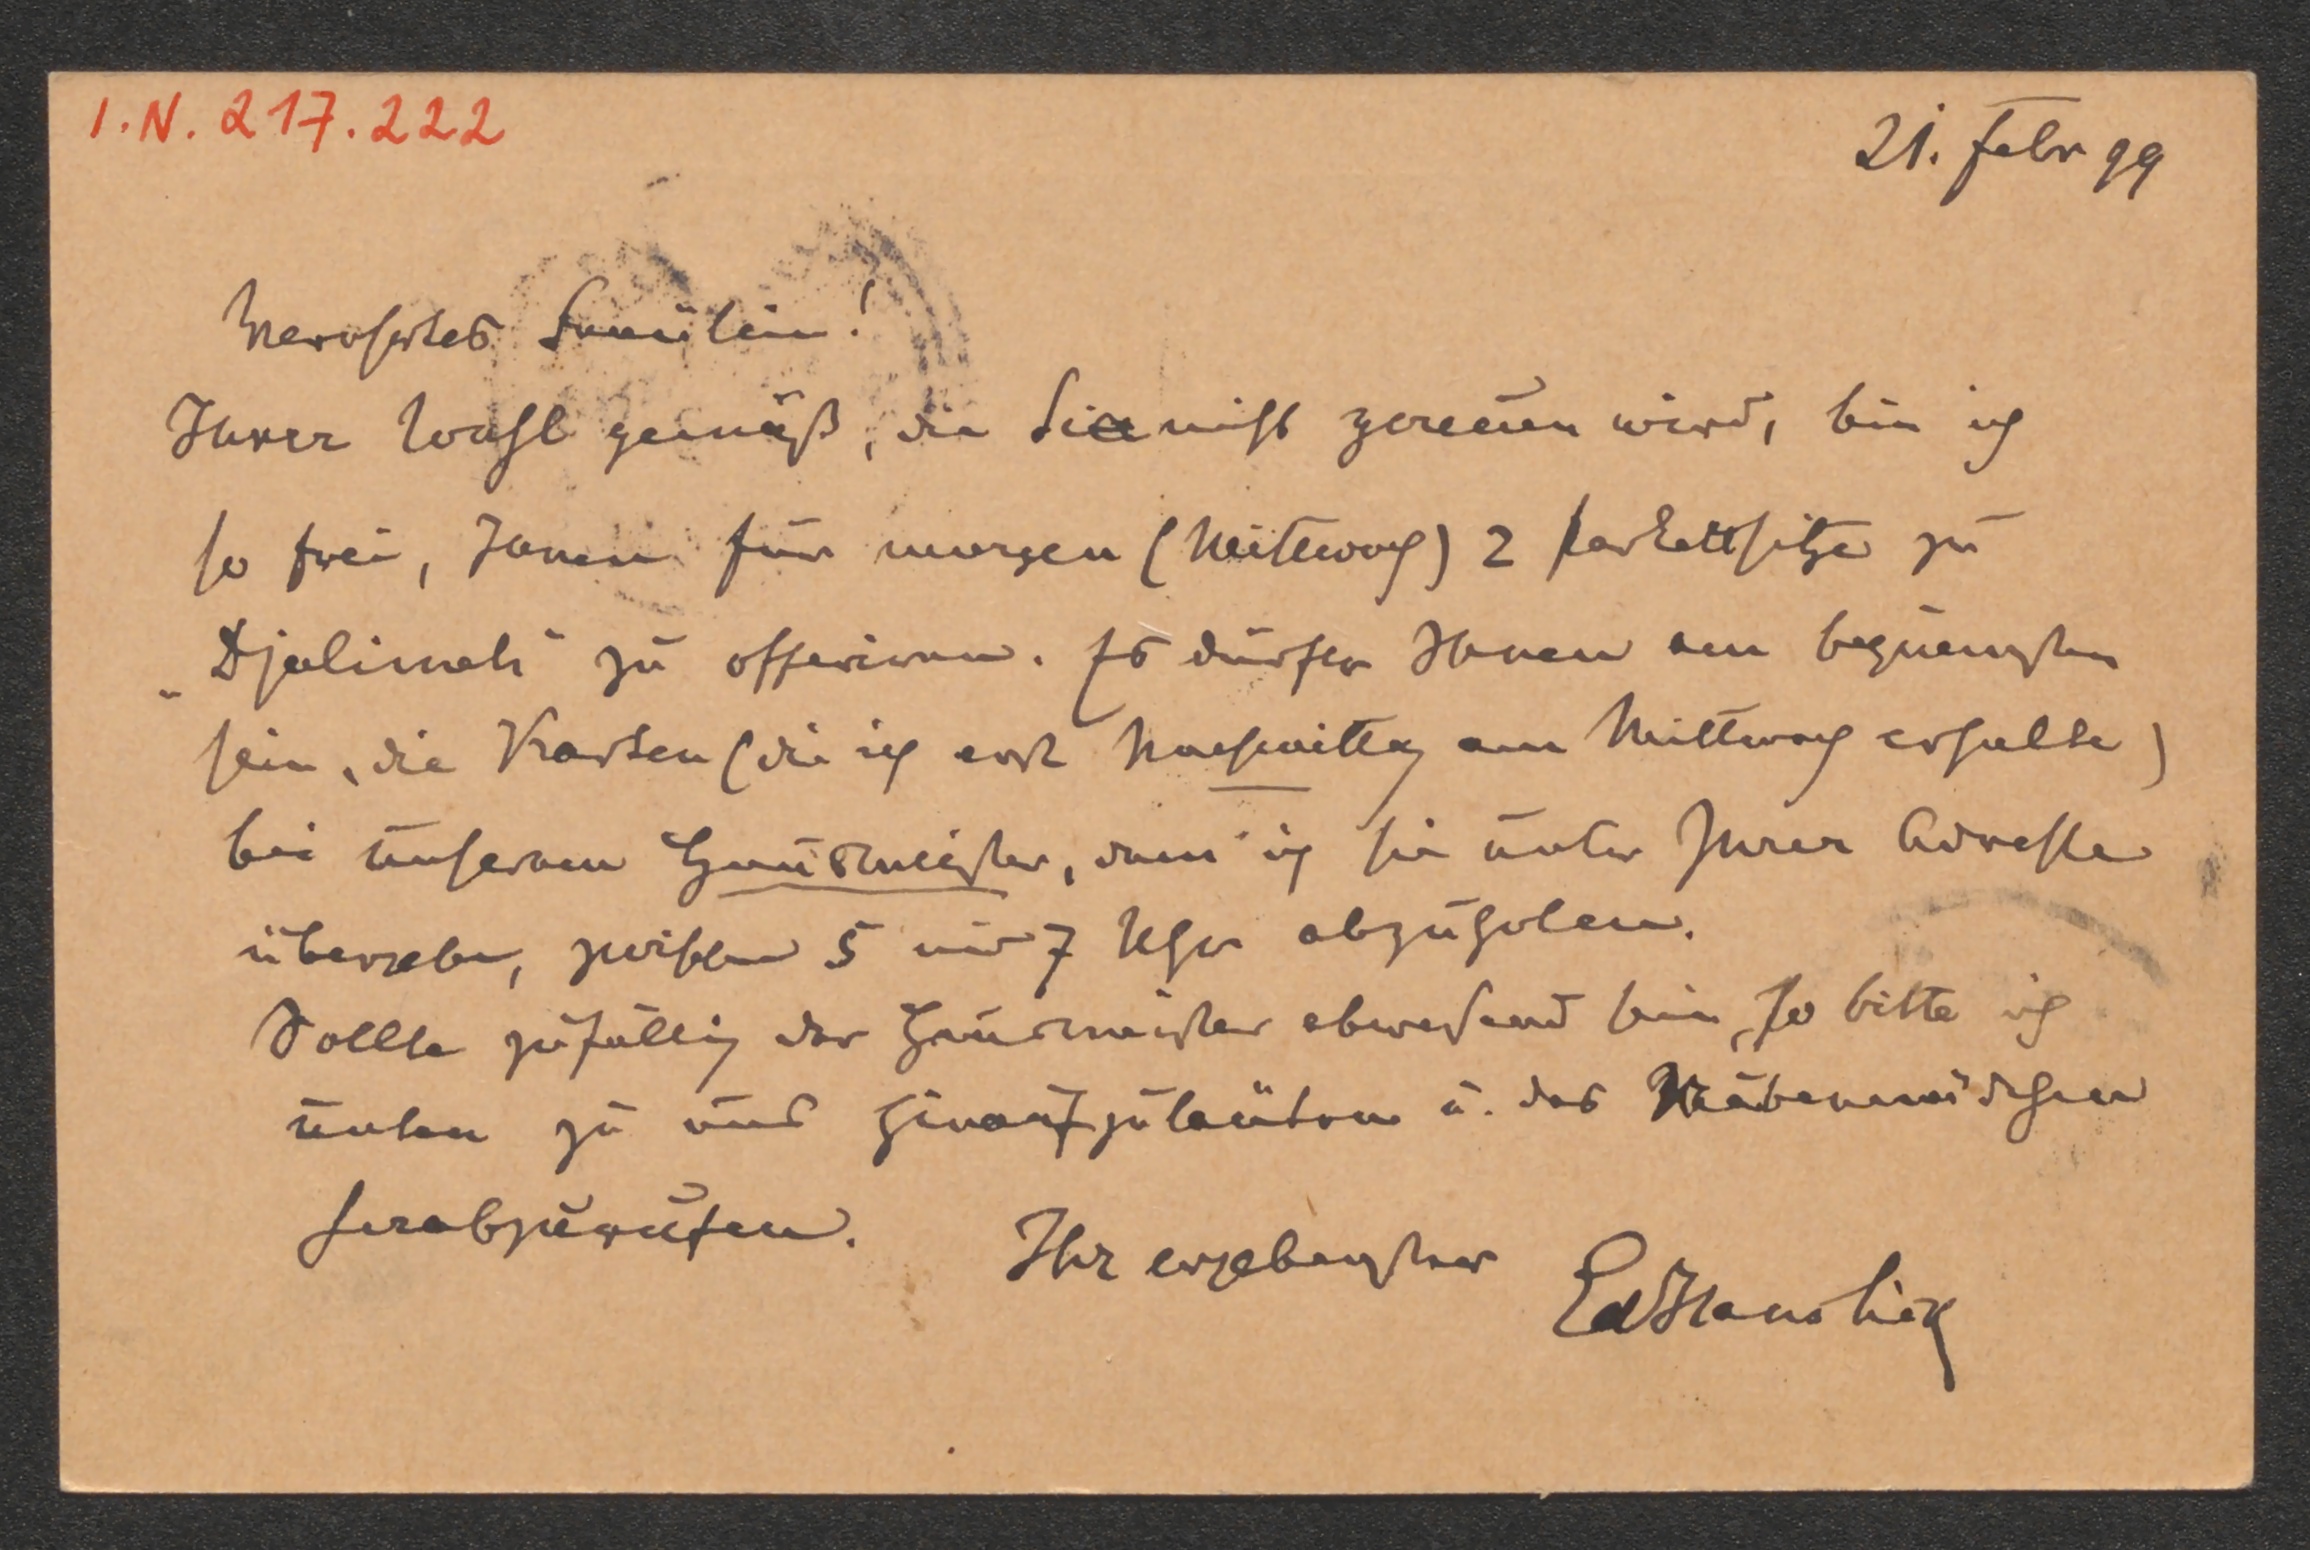 I.N. 217.222
21. Febr 99
Verehrtes Fräulein!
Ihrer Wahl gemäß, die Sie nicht gereuen wird, bin ich
so frei, Ihnen für morgen (Mittwoch) 2 Parkettsitze zu
„Djelileh“ zu offeriren. Es dürfte Ihnen am bequemsten
sein, die Karten (die ich erst Nachmittag am Mittwoch erhalte)
bei unserem Hausmeister, dem ich sie unter Ihrer Adresse
übergebe, zwischen 5 und 7 Uhr abzuholen.
Sollte zufällig der Hausmeister abwesend sein, so bitte ich
unten zu uns hinaufzuläuten u. das
herabzurufen.
Ihr ergebenster
EdHanslick